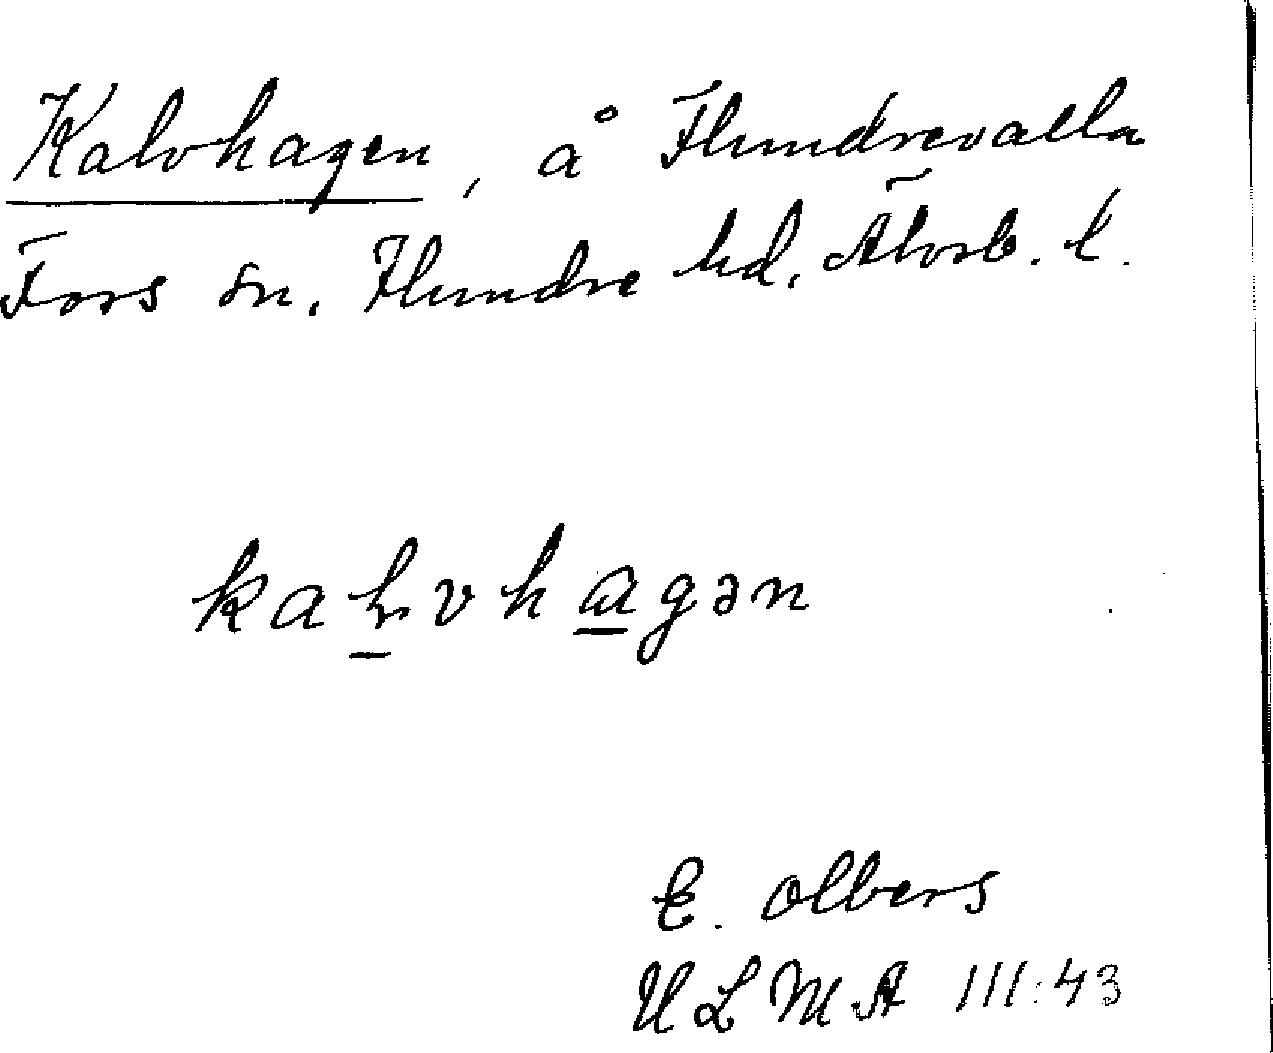 Kalvhagen, å Flundrevalla
Fors sn. Flundre hd. Älvsb. l.
kaļvhagən
E. Olbers
ULMA III:43